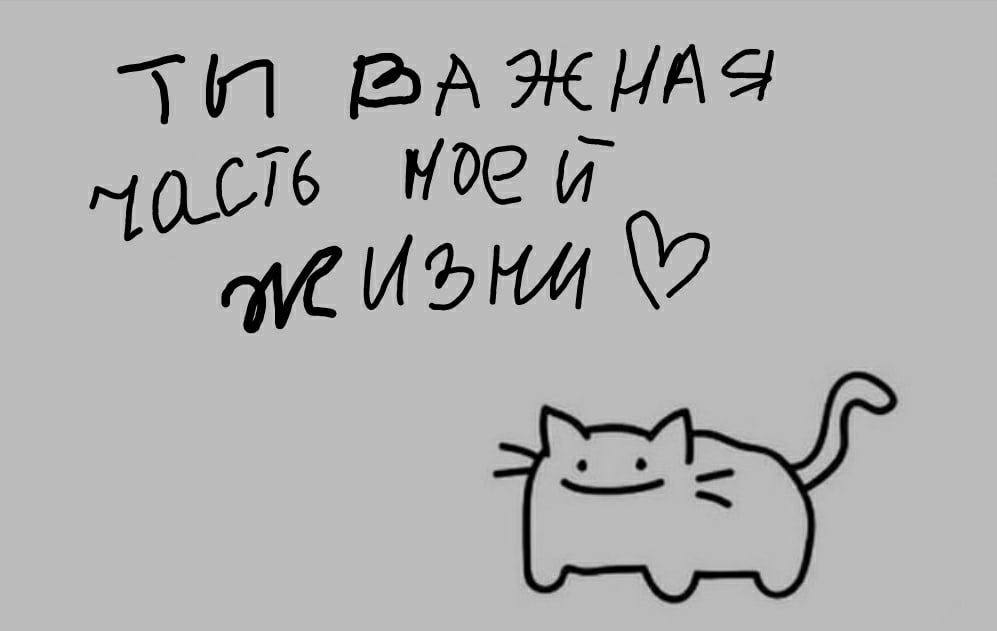 ТЫ ВАЖНАЯ
часть моей
жизни ♡